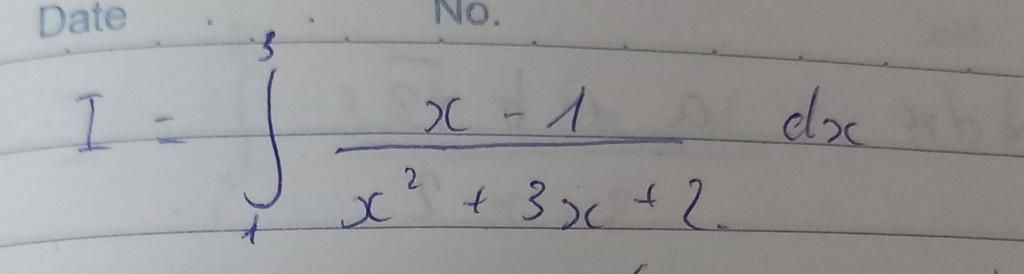 Date No.
I = \int_{1}^{3} \frac{x - 1}{x^2 + 3x + 2} dx